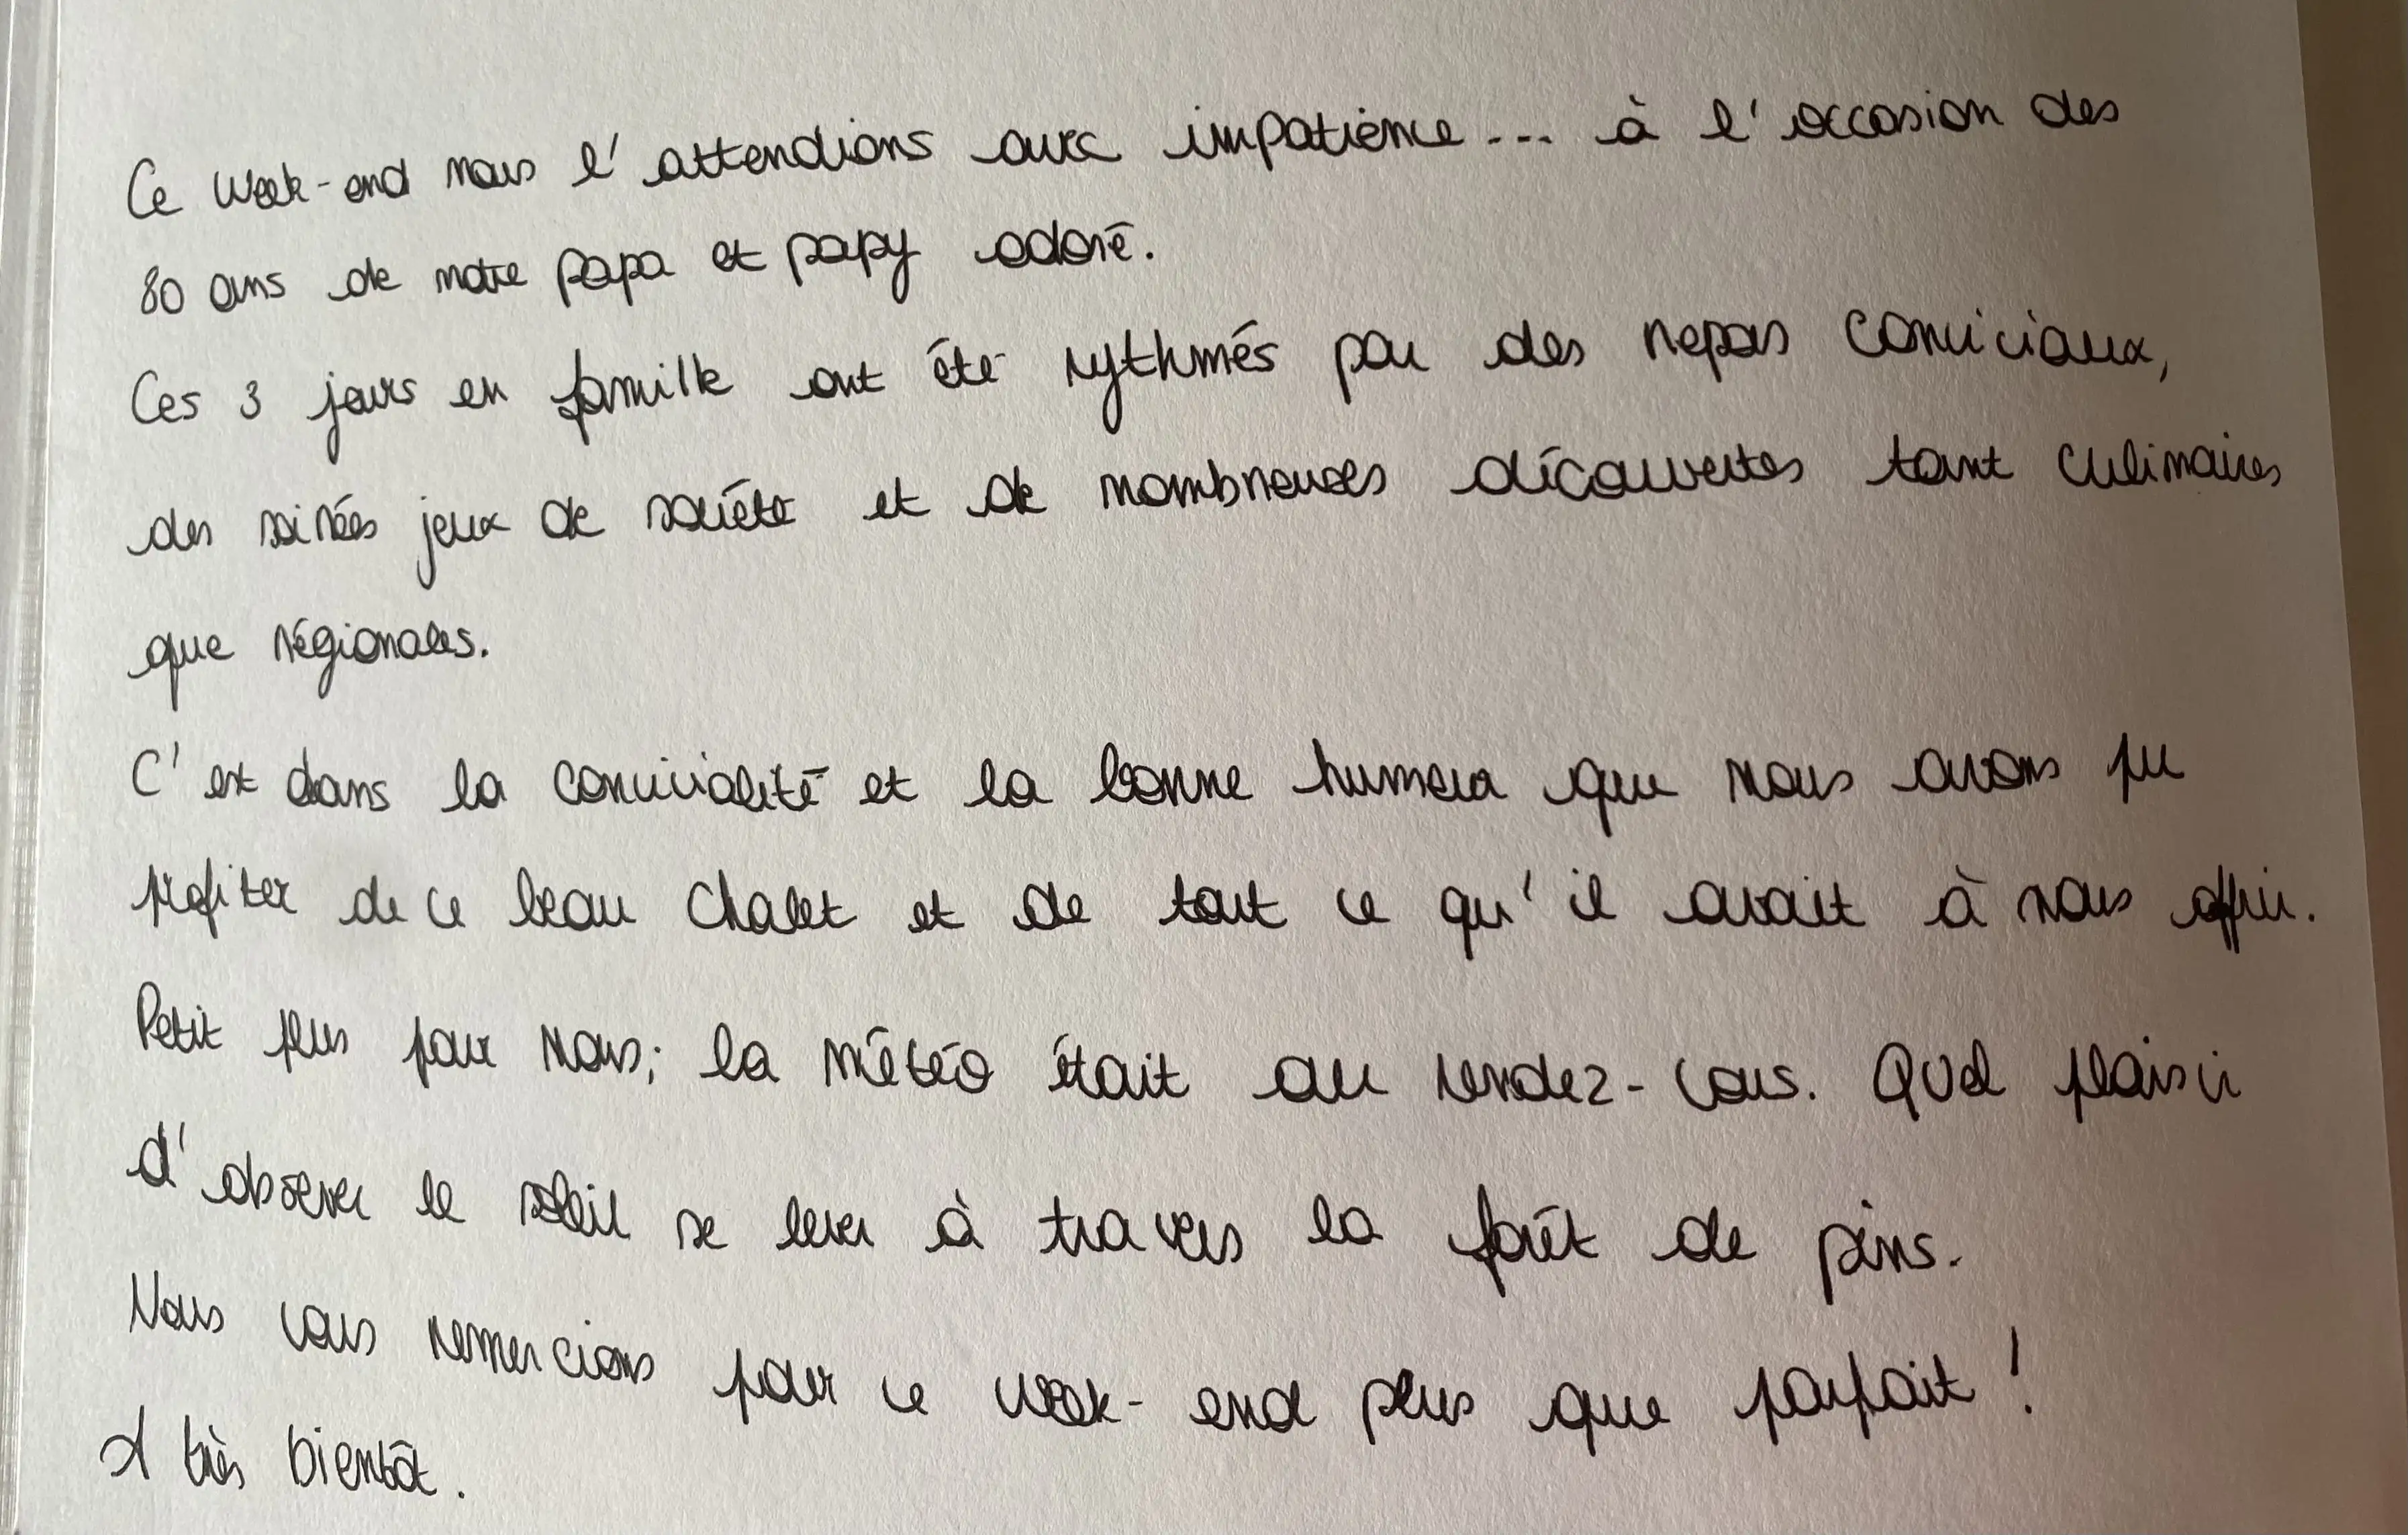 Ce week-end nous l'attendions avec impatience... à l'occasion des
80 ans de notre papa et papy adoré.
Ces 3 jours en famille ont été rythmés par des repas conviviaux,
des soirées jeux de société et de nombreuses découvertes tant culinaires
que régionales.
C'est dans la convivialité et la bonne humeur que nous avons pu
profiter de ce beau chalet et de tout ce qu'il avait à nous offrir.
Petit plus pour nous; la météo était au rendez-vous. Quel plaisir
d'observer le soleil se lever à travers la forêt de pins.
Nous vous remercions pour ce week-end plus que parfait !
A très bientôt.